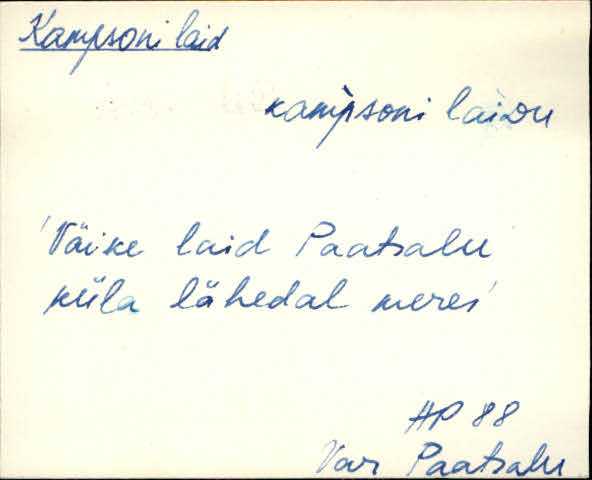 Kampsoni laid
kam̀psoni laiᴅu
'Väike laid Paatsalu
küla lähedal meres'
HP 88
Var Paatsalu